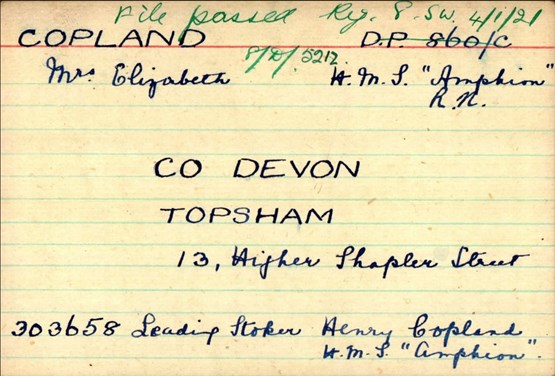 File passed Reg. 8. SW. 4/1/21
COPLAND D.P. 860/C
P/D/5212
Mrs Elizabeth H.M.S. "Amphion"
R.N.
CO DEVON
TOPSHAM
13, Higher Shapler Street
303658 Leading Stoker Henry Copland
H.M.S. "Amphion".